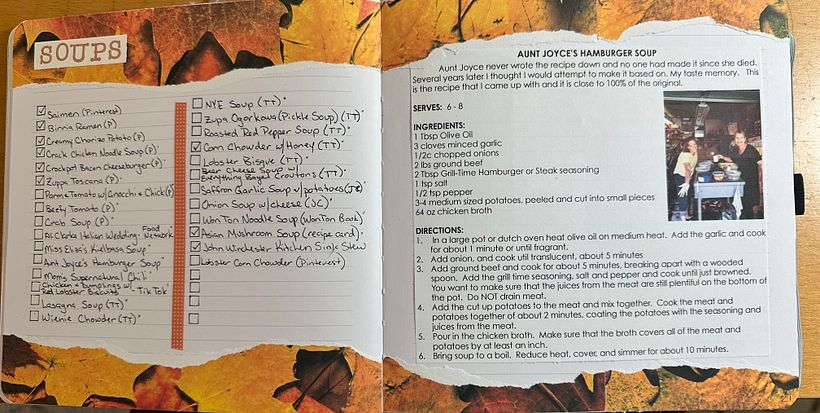 SOUPS
Saimen (Pinterest)
Birria Ramen (P)
Creamy Chorizo Potato (P)
Crack Chicken Noodle Soup (P)
Crockpot Bacon Cheeseburger (P)
Zuppa Toscana (P)
Parm & Tomato w/Gnocchi & Chick (P)
Beefy Tomato (P)
Crab Soup (P)
Clarke Italian Wedding - Food Network
Miss Eliza's Kielbasa Soup
Aunt Joyce's Hamburger Soup
Mom's Supernatural Chili
Chicken & Dumplings w/
Red Lobster Biscuits - Tik Tok
Lasagna Soup (TT)
Wienie Chowder (TT)
NYE Soup (TT)
Zupa Ogorkowa (Pickle Soup) (TT)
Roasted Red Pepper Soup (TT)
Corn Chowder w/Honey (TT)
Lobster Bisque (TT)
Beer Cheese Soup w/
Everything Bagel Croutons (TT)
Saffron Garlic Soup w/potatoes
Onion Soup w/cheese (JC)
Won Ton Noodle Soup (Won Ton Book)
Asian Mushroom Soup (recipe card)
John Winchester Kitchen Sink Stew
Lobster Corn Chowder (Pinterest)
AUNT JOYCE'S HAMBURGER SOUP
Aunt Joyce never wrote the recipe down and no one had made it since she died.
Several years later I thought I would attempt to make it based on. My taste memory. This
is the recipe that I came up with and it is close to 100% of the original.
SERVES: 6 - 8
INGREDIENTS:
1 Tbsp Olive Oil
3 cloves minced garlic
1/2c chopped onions
2 lbs ground beef
2 Tbsp Grill-Time Hamburger or Steak seasoning
1 tsp salt
1/2 tsp pepper
3-4 medium sized potatoes, peeled and cut into small pieces
64 oz chicken broth
DIRECTIONS:
1. In a large pot or dutch oven heat olive oil on medium heat. Add the garlic and cook
for about 1 minute or until fragrant.
2. Add onion, and cook util translucent, about 5 minutes
3. Add ground beef and cook for about 5 minutes, breaking apart with a wooden
spoon. Add the grill time seasoning, salt and pepper and cook until just browned.
You want to make sure that the juices from the meat are still plentiful on the bottom of
the pot. Do NOT drain meat.
4. Add the cut up potatoes to the meat and mix together. Cook the meat and
potatoes together of about 2 minutes, coating the potatoes with the seasoning and
juices from the meat.
5. Pour in the chicken broth. Make sure that the broth covers all of the meat and
potatoes by at least an inch.
6. Bring soup to a boil. Reduce heat, cover, and simmer for about 10 minutes.